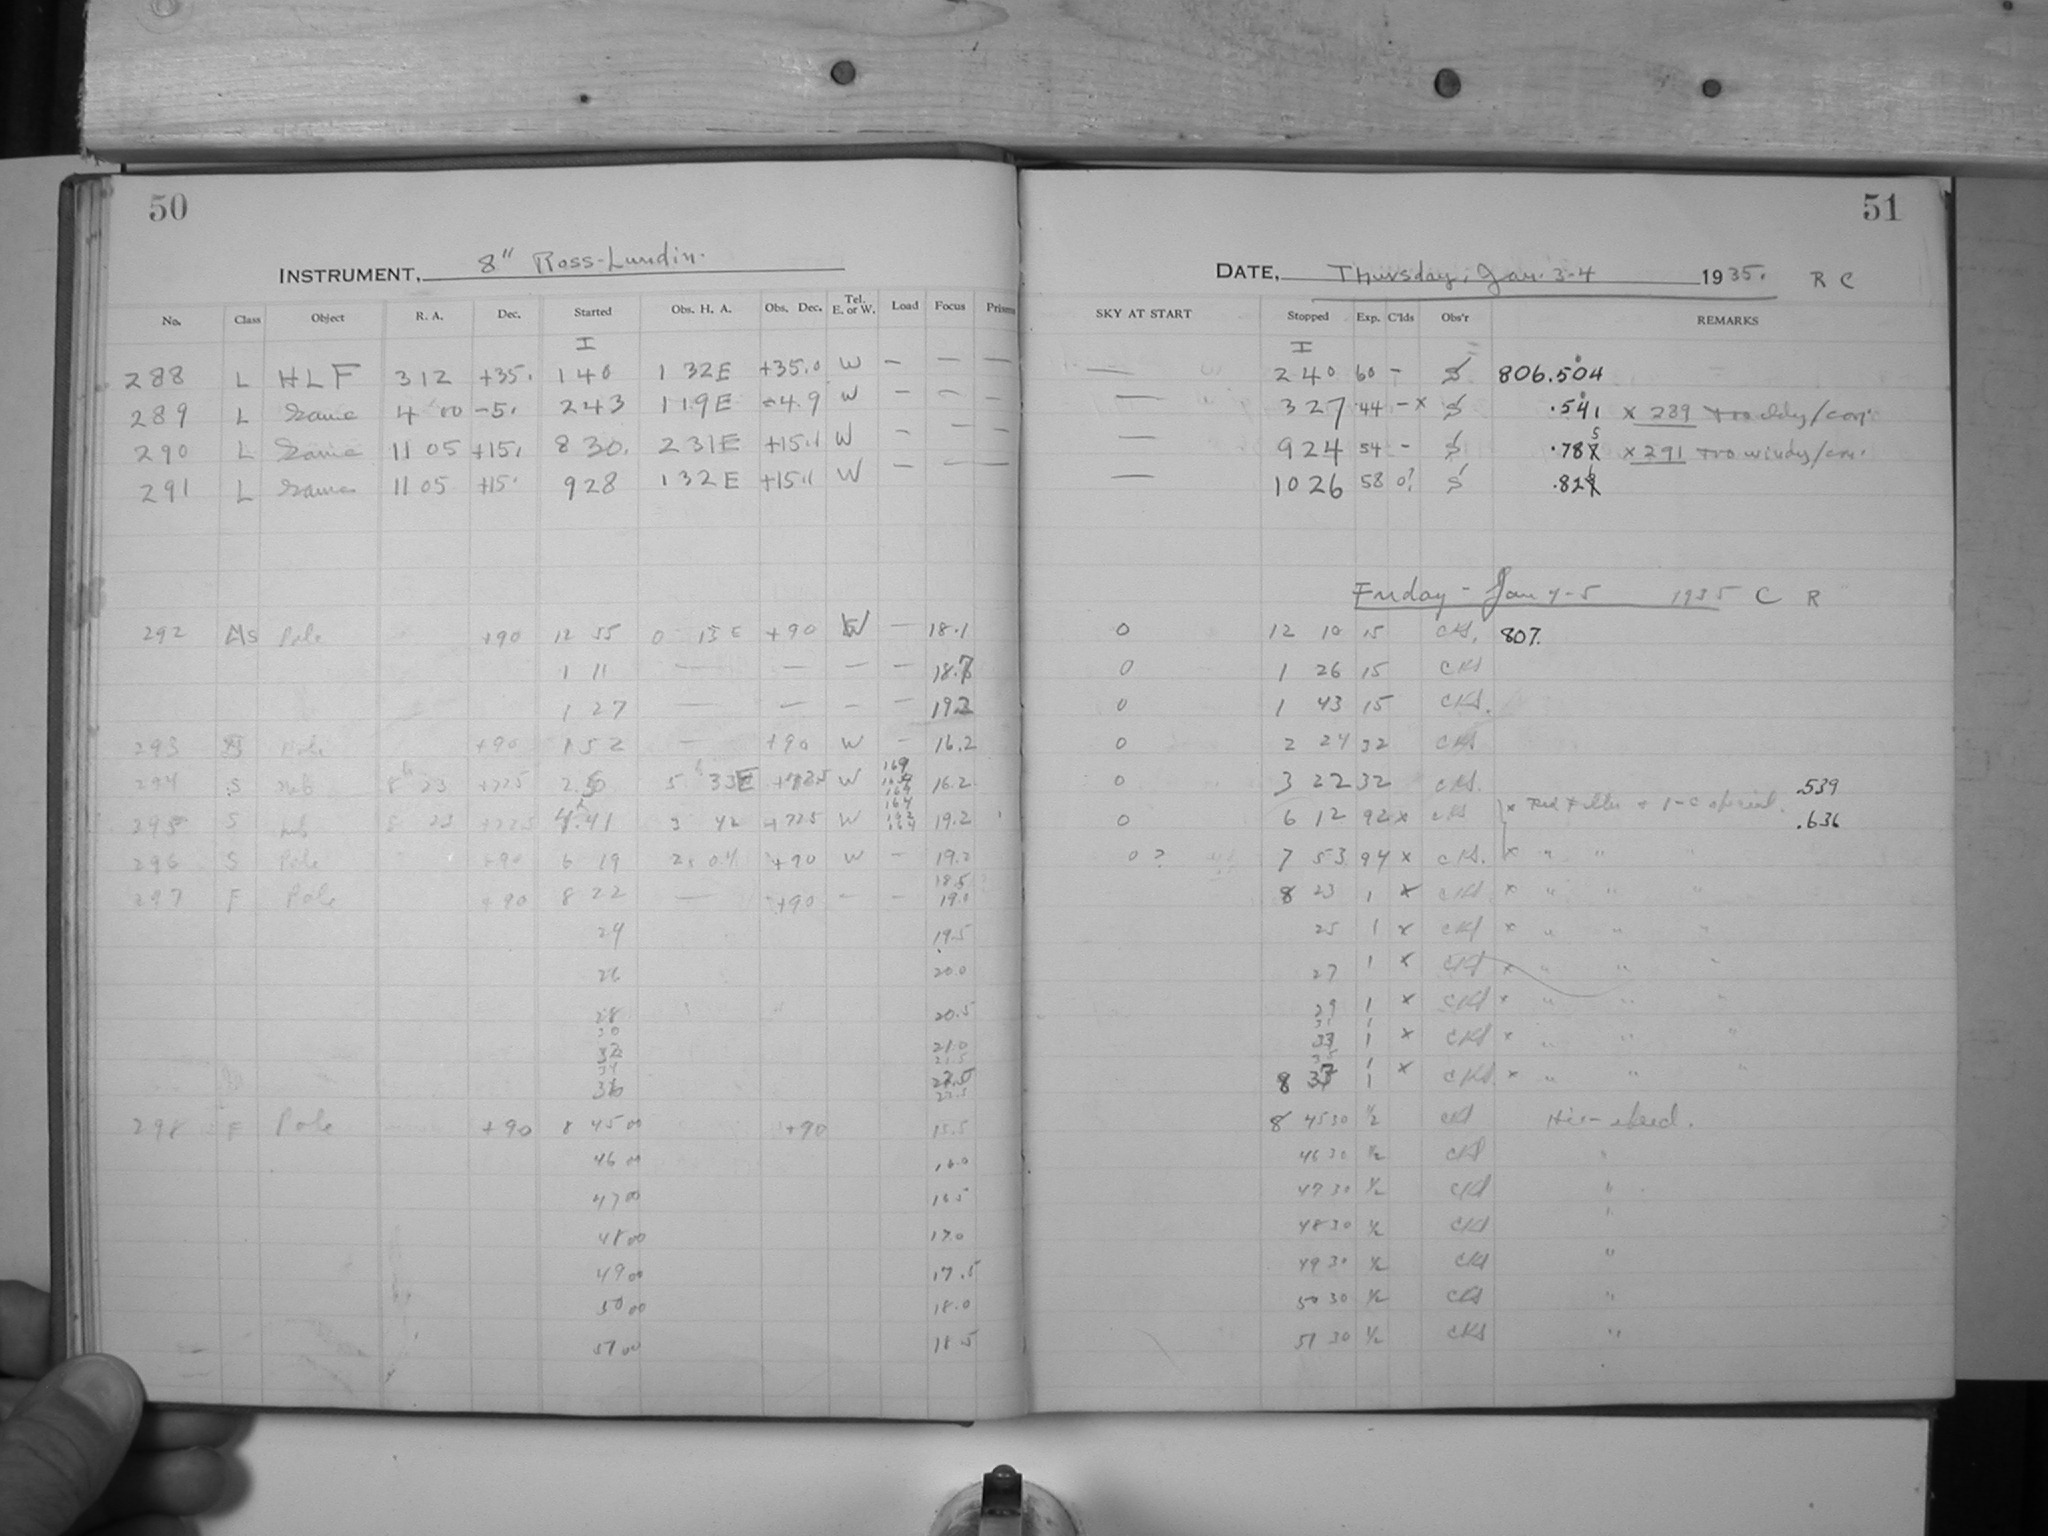 50
INSTRUMENT, 8" Ross-Lundin.
No. Class Object R. A. Dec. Started Obs. H. A. Obs. Dec. Tel. E. or W. Load Focus Prisms
I
288 L HLF 3 12 +35. 1 40 1 32E +35.0 W — — —
289 L Same 4 00 -5. 2 43 1 19E -4.9 W — — —
290 L Same 11 05 +15. 8 30. 2 31E +15.1 W — — —
291 L Same 11 05 +15. 9 28 1 32E +15.1 W — — —
292 Pole +90 12 55 0 15 E +90 W — 18.1
1 11 — — — — 18.7
1 27 — — — — 19.2
293 Pole +90 1 52 — +90 W — 16.2
294 S 8h 23 +725 2 50 5 33E W 16.2
295 S 8 23 +725 4.41 3 42 +725 W 19.2
296 S Pole +90 6 19 2 04 +90 W — 19.2
18.5
297 F Pole +90 8 22 — +90 — — 19.0
24 19.5
26 20.0
28 20.5
30
32 21.0
34 21.5
36
298 F Pole +90 8 45 00 +90 15.5
46 00 16.0
47 00 16.5
48 00 17.0
49 00 17.5
50 00 18.0
51 00 18.5
51
DATE, Thursday, Jan. 3-4 1935. R C
SKY AT START Stopped Exp. C'lds Obs'r REMARKS
I
— 2 40 60 — S 806.504
— 3 27 44 — x S .541 x 289
— 9 24 54 — S .785 x 291 too windy
— 10 26 58 0? S .82
Friday - Jan 4-5 1935 C R
0 12 10 15 CHS. 807.
0 1 26 15 CHS
0 1 43 15 CHS.
0 2 24 32 CHS
0 3 22 32 CHS. .539
0 6 12 92 x CHS x Red Filter + 1-C special. .636
0 ? 7 53 94 x CHS. x " " "
8 23 1 x CHS x " " "
25 1 x CHS x " " "
27 1 x CHS x " " "
29 1 x CHS x " " "
31 1
33 1 x CHS x " " "
35 1
8 37 1 x CHS x " " "
8 45 30 1/2 CHS Hi-speed.
46 30 1/2 CHS "
47 30 1/2 CHS "
48 30 1/2 CHS "
49 30 1/2 CHS "
50 30 1/2 CHS "
51 30 1/2 CHS "